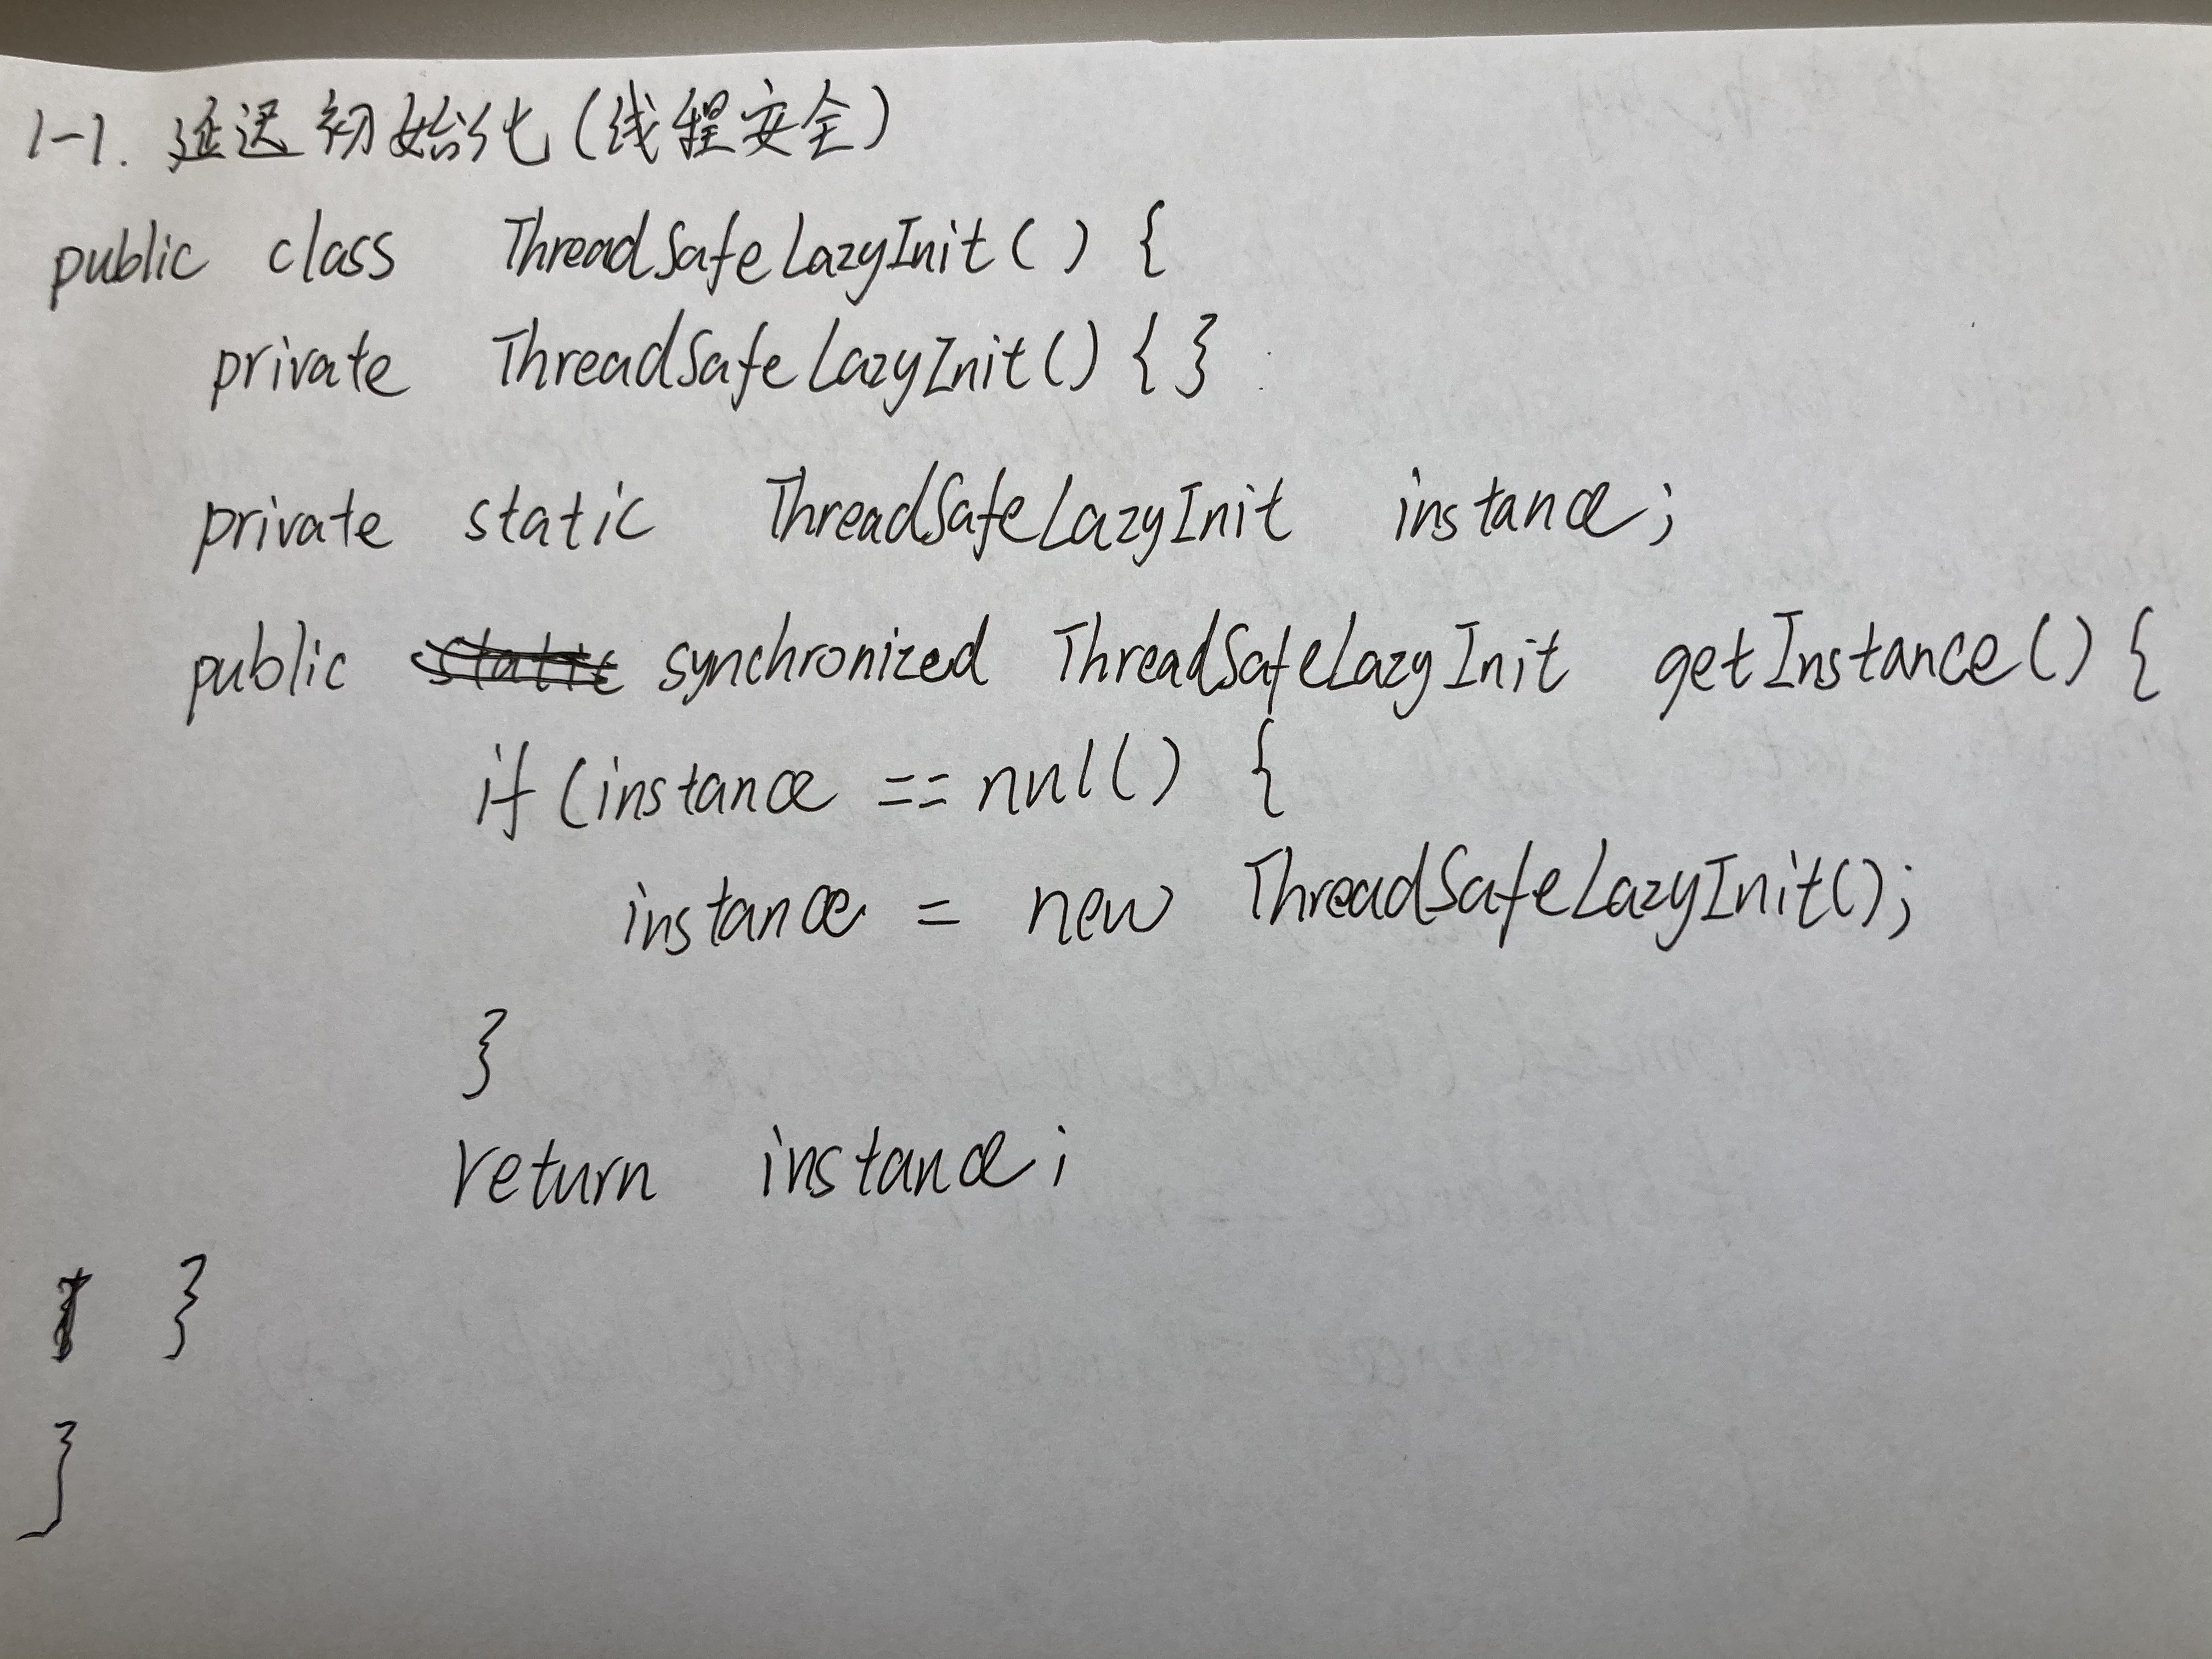 1-1. 延迟初始化(线程安全)
public class ThreadSafeLazyInit() {
private ThreadSafeLazyInit() { }
private static ThreadSafeLazyInit instance;
public static synchronized ThreadSafeLazyInit getInstance() {
if (instance == null() {
instance = new ThreadSafeLazyInit();
}
return instance;
}
}